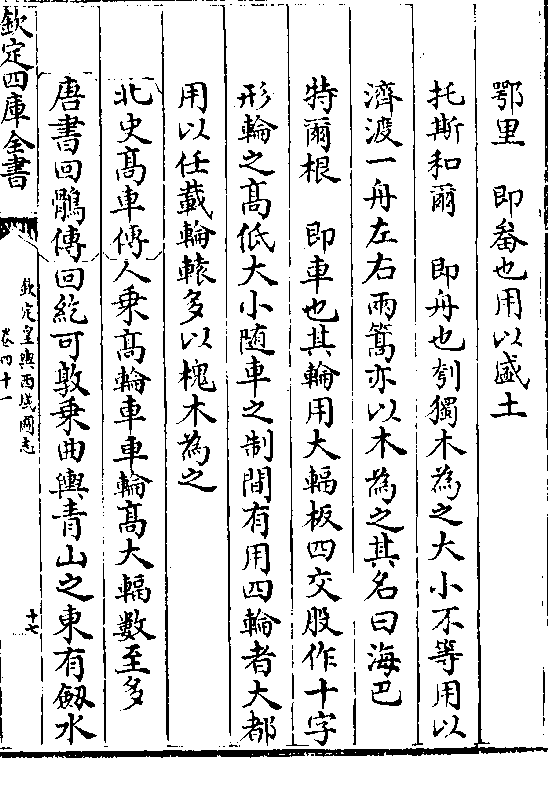 鄂里　即畚也用以盛土
托斯和爾　即舟也刳獨木為之大小不等用以
濟渡一舟左右兩篙亦以木為之其名曰海巴
特爾根　即車也其輪用大輻板四交股作十字
形輪之髙低大小随車之制間有用四輪者大都
用以任載輪轅多以槐木為之
北史髙車傳人乗髙輪車車輪髙大輻數至多
唐書回鶻傳回紇可敦乗曲輿青山之東有劔水
欽定四庫全書
欽定皇輿西域圖志
卷四十一
十七